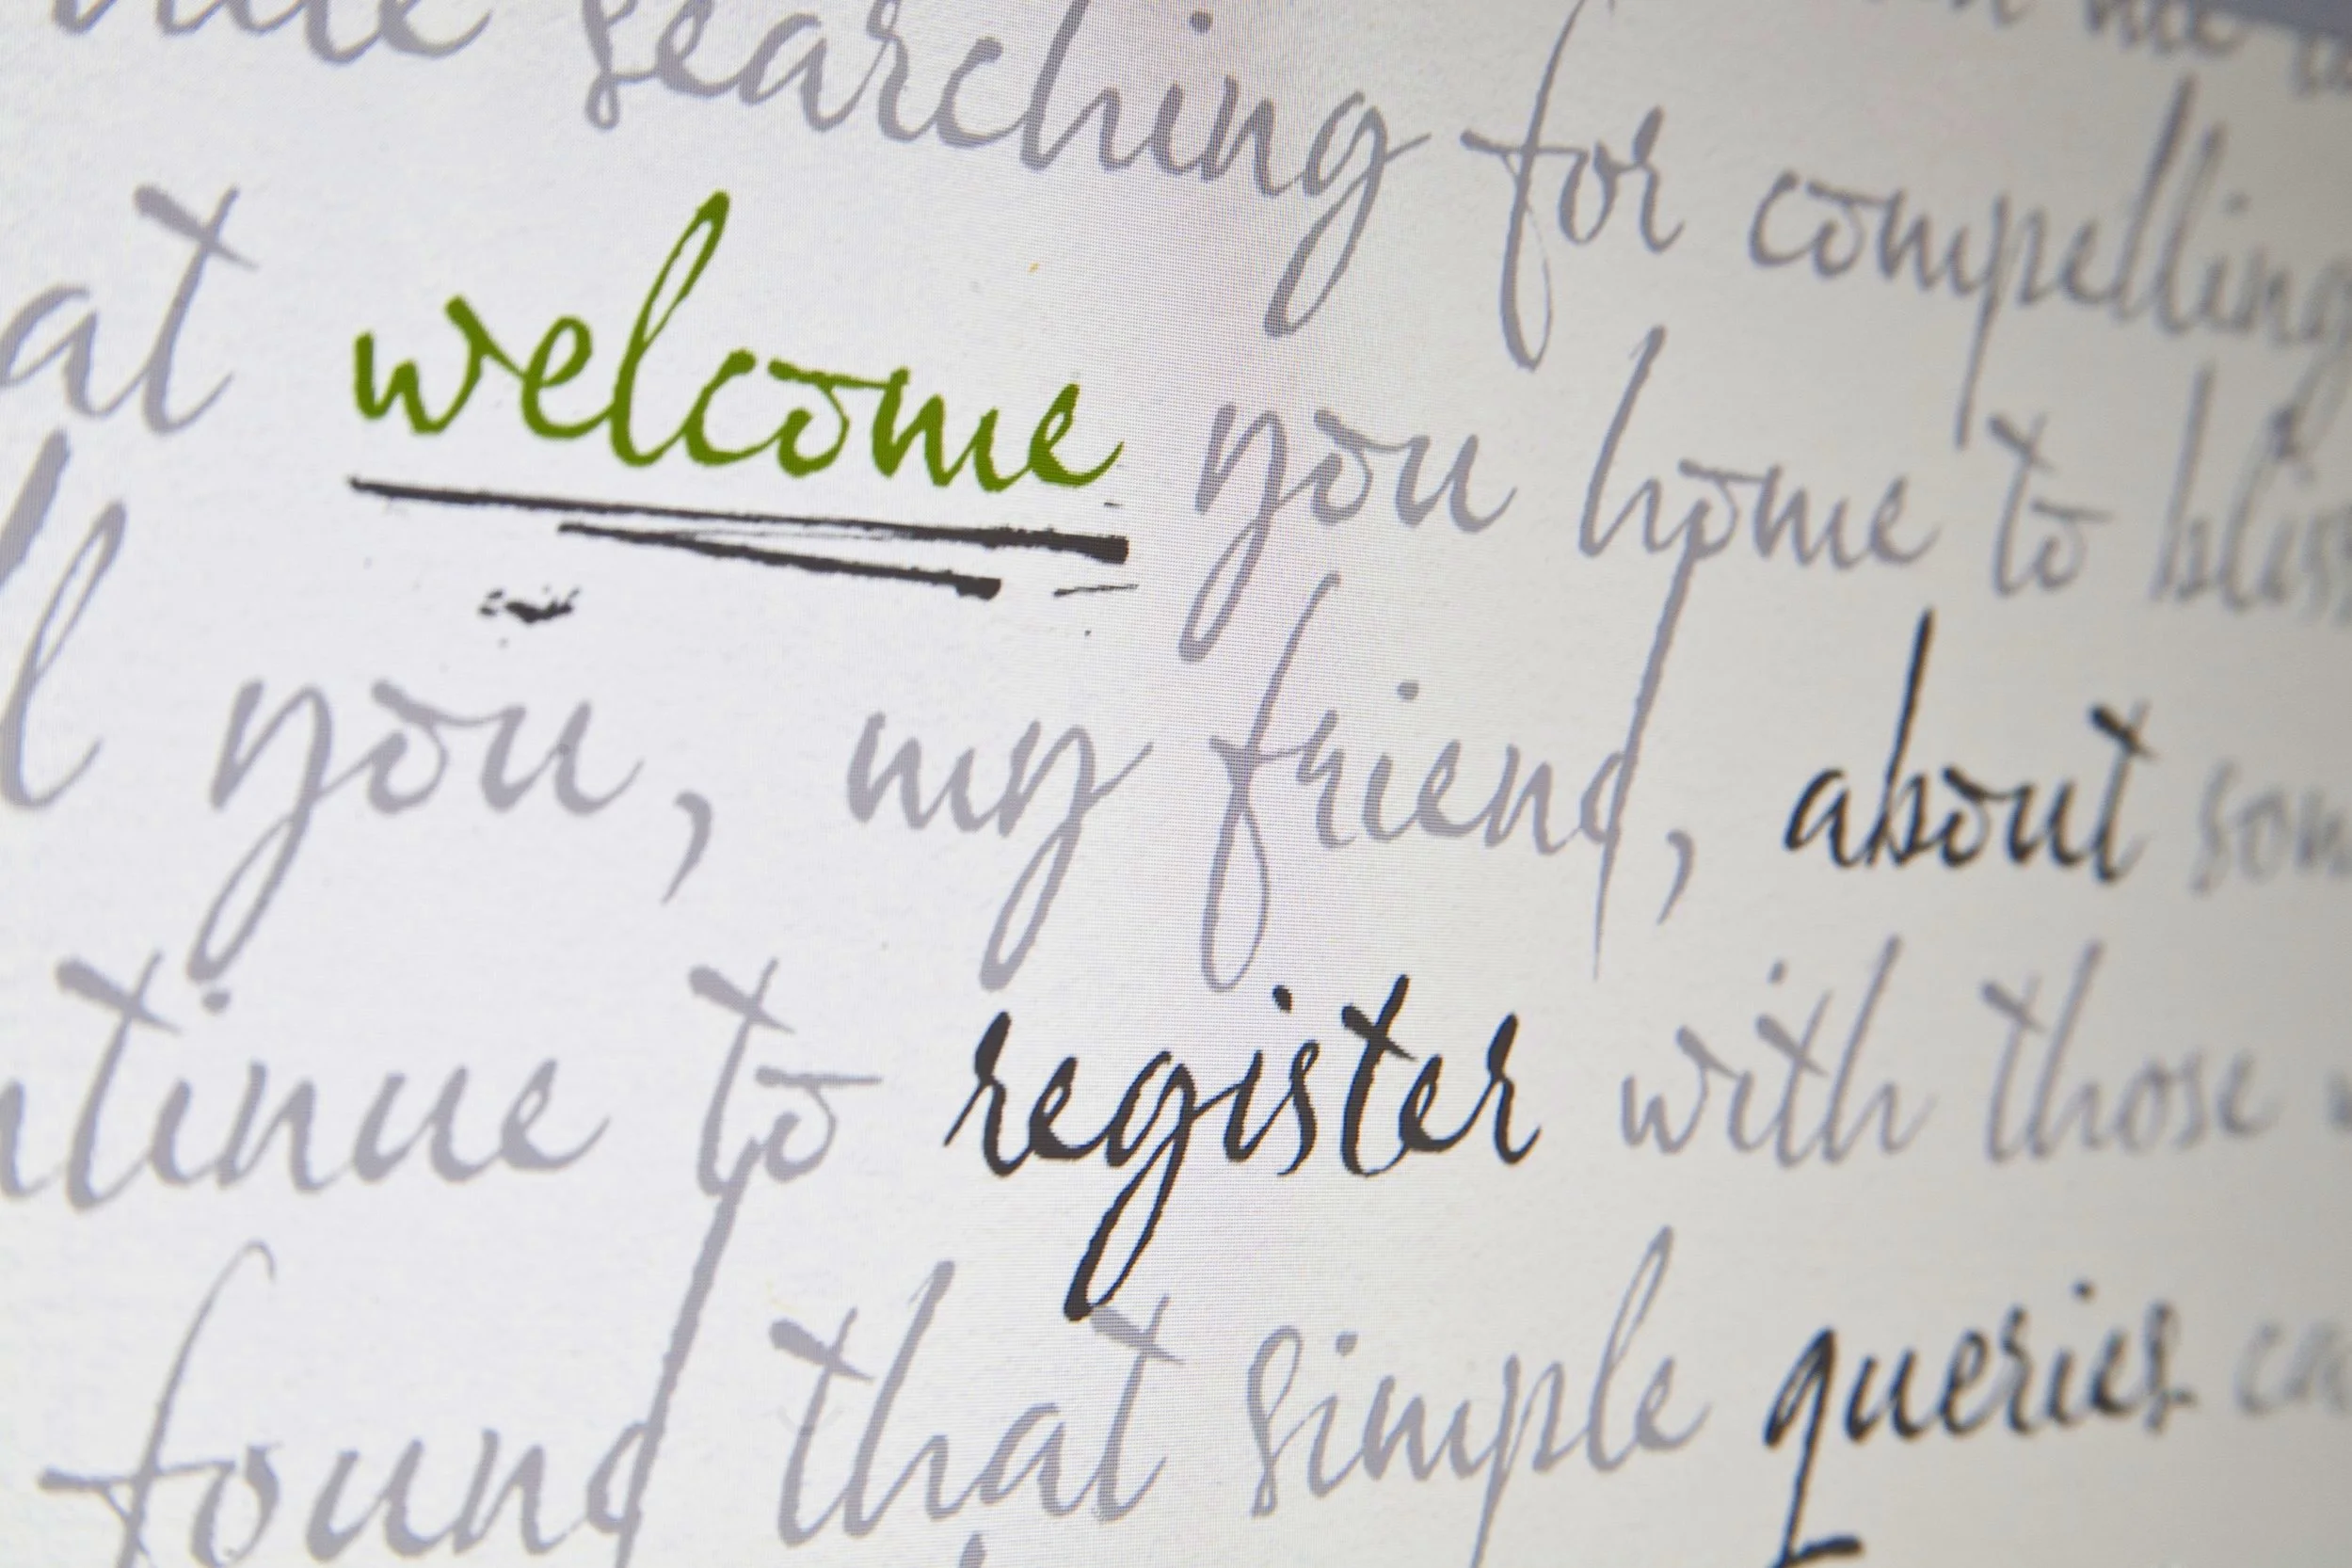 searching for compelling
at welcome you home to bliss
you, my friend, about
to register with those
found that simple queries